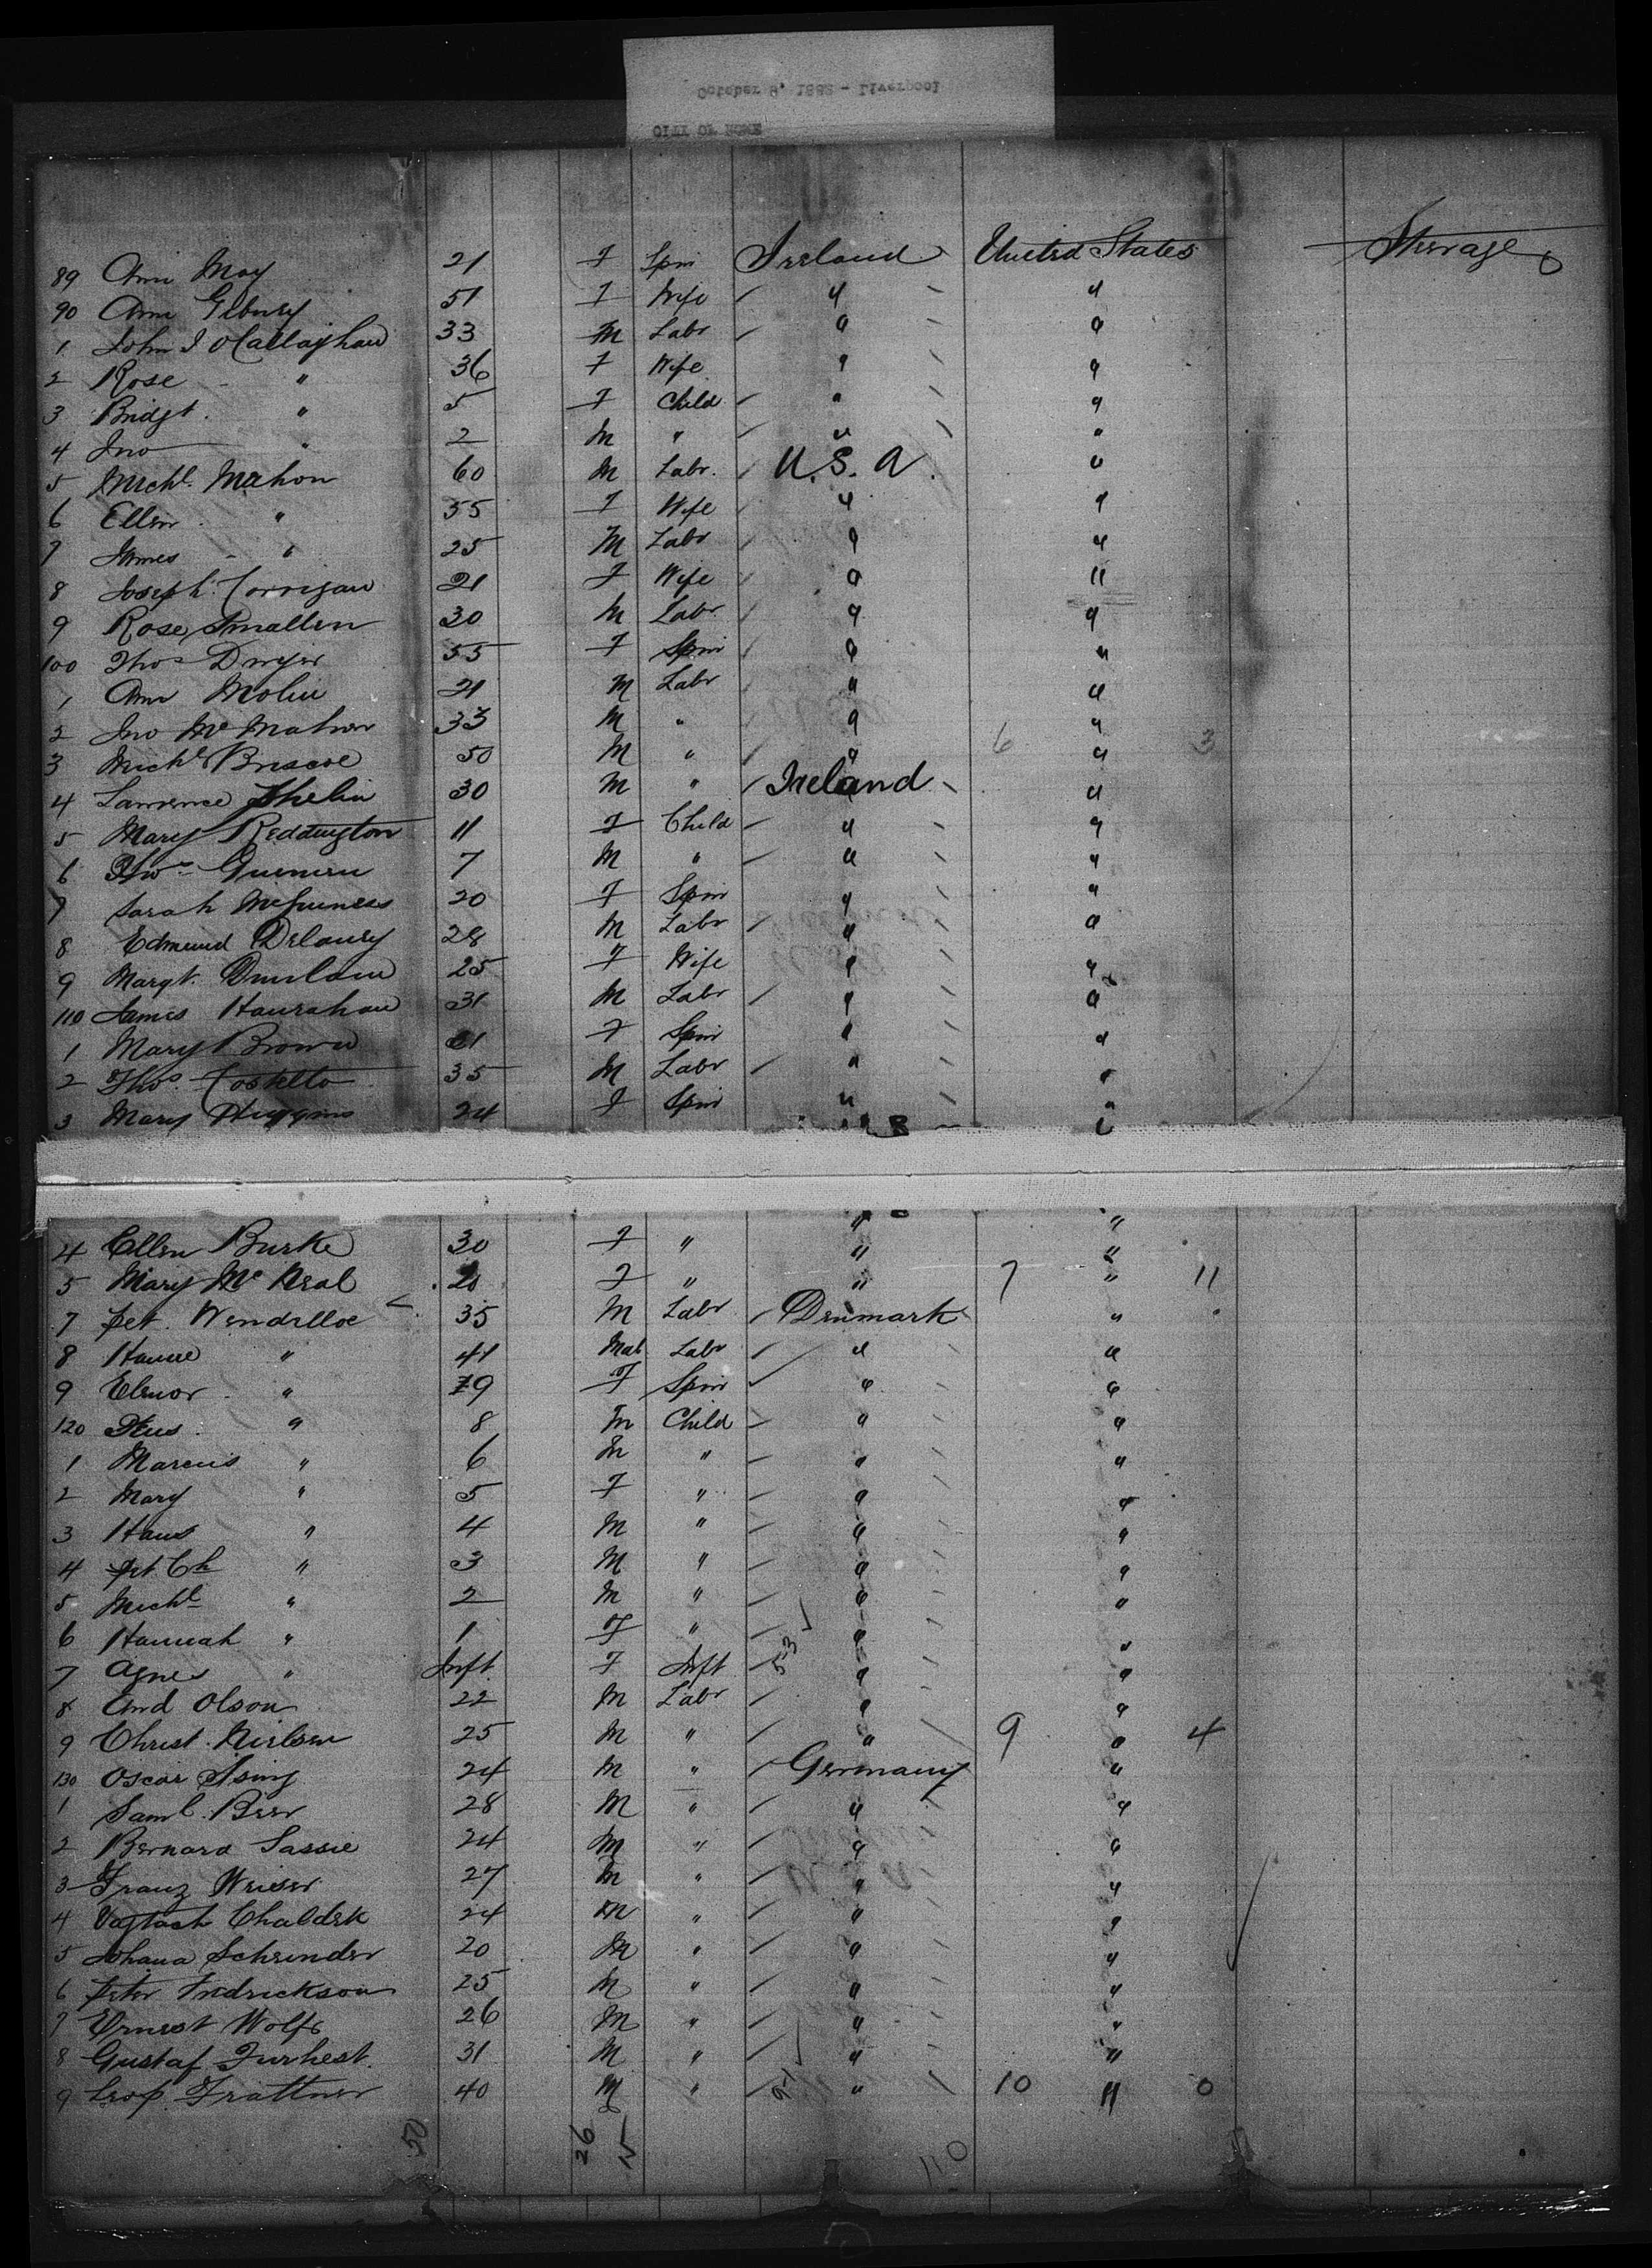 October 9, 1882 - Liverpool
CITY OF ROME
89 Ann May 21 F Spin Ireland United States Steerage
90 Ann 51 F Wife " "
1 John J O'Callaghan 33 M Labr " "
2 Rose " 36 F Wife " "
3 Bridgt. " 5 F Child " "
4 Jno " 2 M " " "
5 Michl. Mahon 60 M Labr. U.S.A. "
6 Ellen " 55 F Wife " "
7 James " 25 M Labr " "
8 Joseph Corrigan 21 F Wife " "
9 Rose Smallen 30 M Labr. " "
100 Thos Dwyer 55 F Spin " "
1 Ann 21 M Labr " "
2 Jno McMahon 33 M " " "
3 Michl Briscoe 50 M " " 6 " 3
4 Lawrence Phelin 30 M " Ireland "
5 Mary Reddington 11 F Child " "
6 Thos 7 M " " "
7 Sarah McGuiness 20 F Spin " "
8 Edmund Delaney 28 M Labr " "
9 Margt. 25 F Wife " "
110 James Hanrahan 31 M Labr " "
1 Mary Brown 21 F Spin " "
2 Thos. Costello 35 M Labr " "
3 Mary Huggins 24 F Spin " "
4 Ellen Burke 30 F " " "
5 Mary McNeal 20 F " " 7 " 11
7 Pet. Wendelloe 35 M Labr Denmark "
8 Hanne " 41 Mal Labr " "
9 Elenor " 19 F Spin " "
120 " 8 M Child " "
1 Marcus " 6 M " " "
2 Mary " 5 F " " "
3 Hans " 4 M " " "
4 Pet Ch " 3 M " " "
5 Michl " 2 M " " "
6 Hannah " 1 F " " "
7 Agnes " Inft F Inft 53 " "
8 And Olson 22 M Labr " "
9 Christ. Neilsen 25 M " " 9 " 4
130 Oscar 24 M " Germany "
1 Saml. Beer 28 M " " "
2 Bernard Sassie 24 M " " "
3 Franz Weiser 27 M " " "
4 Chaldek 24 M " " "
5 Johana Schrinder 20 M " " "
6 Peter Fredrickson 25 M " " "
7 Ernest Wolfe 26 M " " "
8 Gustaf Furhest. 31 M " " "
9 Leop. Trattner 40 M " " 10 " 0
50 26 110